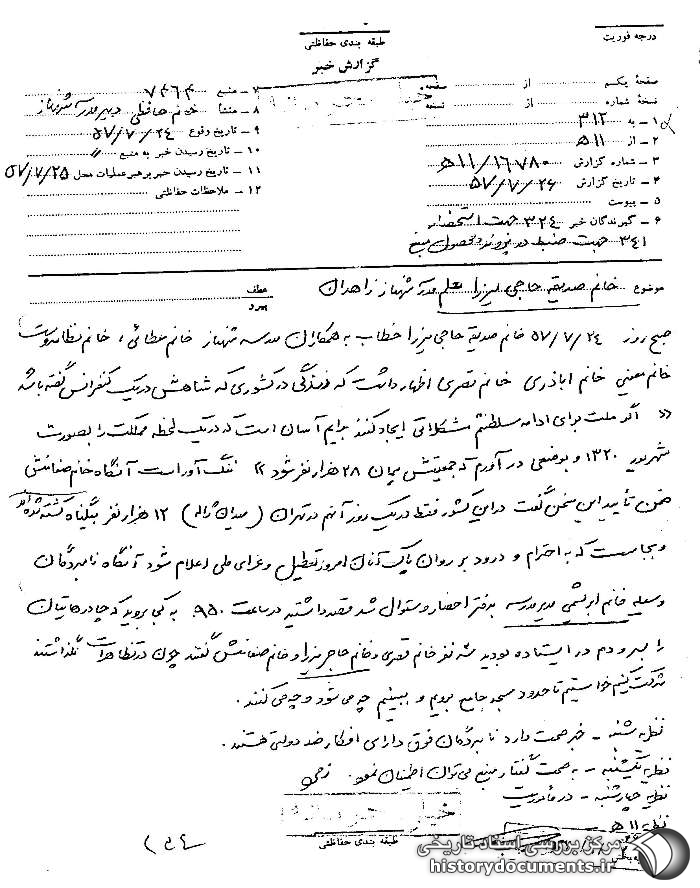 درجه فوریت
طبقه بندی حفاظتی
گزارش خبر
صفحهٔ یکم از صفحه
نسخهٔ شماره از نسخه
۱ - به ۳۱۲
۲ - از ۱۱ه‍
۳ - شماره گزارش ۱۶۷۸۰/۱۱ه‍
۴ - تاریخ گزارش ۵۷/۷/۲۶
۵ - پیوست
۶ - گیرندگان خبر ۳۲۴ جهت استحضار
۳۴۱ جهت ضبط در پرونده محصول منبع
۷ - منبع ۷۴۶۳
۸ - منشأ خانم حافظی دبیر مدرسه شهناز
۹ - تاریخ وقوع ۵۷/۷/۲۴
۱۰ - تاریخ رسیدن خبر به منبع //
۱۱ - تاریخ رسیدن خبر برهبر عملیات محل ۵۷/۷/۲۵
۱۲ - ملاحظات حفاظتی
موضوع خانم صدیقه حاجی میرزا معلم مدرسه شهناز زاهدان
عطف
پیرو
صبح روز ۵۷/۷/۲۴ خانم صدیقه حاجی میرزا خطاب به همکاران مدرسه شهناز خانم عطائی، خانم نظام دوست
خانم معینی خانم اباذری خانم قصری اظهار داشت که زندگی در کشوری که شاهش در یک کنفرانس گفته باشد
« اگر ملت برای ادامه سلطنتم مشکلاتی ایجاد کنند برایم آسان است که در یک لحظه مملکت را بصورت
شهریور ۱۳۲۰ و بوضعی در آورم که جمعیتش همان ۲۸ هزار نفر شود » ننگ آور است آنگاه خانم صفامنش
ضمن تأیید این سخن گفت در این کشور فقط در یک روز آنهم در تهران (میدان ژاله) ۱۲ هزار نفر بیگناه کشته شده اند
و بجاست که به احترام و درود بر روان پاک آنان امروز تعطیل و عزای ملی اعلام شود آنگاه نامبردگان
وسیله خانم ابریشمی مدیر مدرسه بدفتر احضار و سئوال شد قصد داشتید در ساعت ۹۵۰ به کجا بروید که چادرهایتان
را سر و دم در ایستاده بودید سه نفر خانم قصری و خانم حاجی میرزا و خانم صفامنش گفتند چون در تظاهرات نگذاشتند
شرکت کنیم خواستیم تا حدود مسجد جامع برویم و ببینیم چه می شود و چه می کنند.
نظریه شنبه - خبر صحت دارد نامبردگان فوق دارای افکار ضد دولتی هستند.
نظریه یکشنبه - به صحت گفتار منبع می توان اطمینان نمود.
نظریه چهارشنبه - در مأموریت
نظریه ۱۱ه‍ -
طبقه بندی حفاظتی
مرکز بررسی اسناد تاریخی
historydocuments.ir